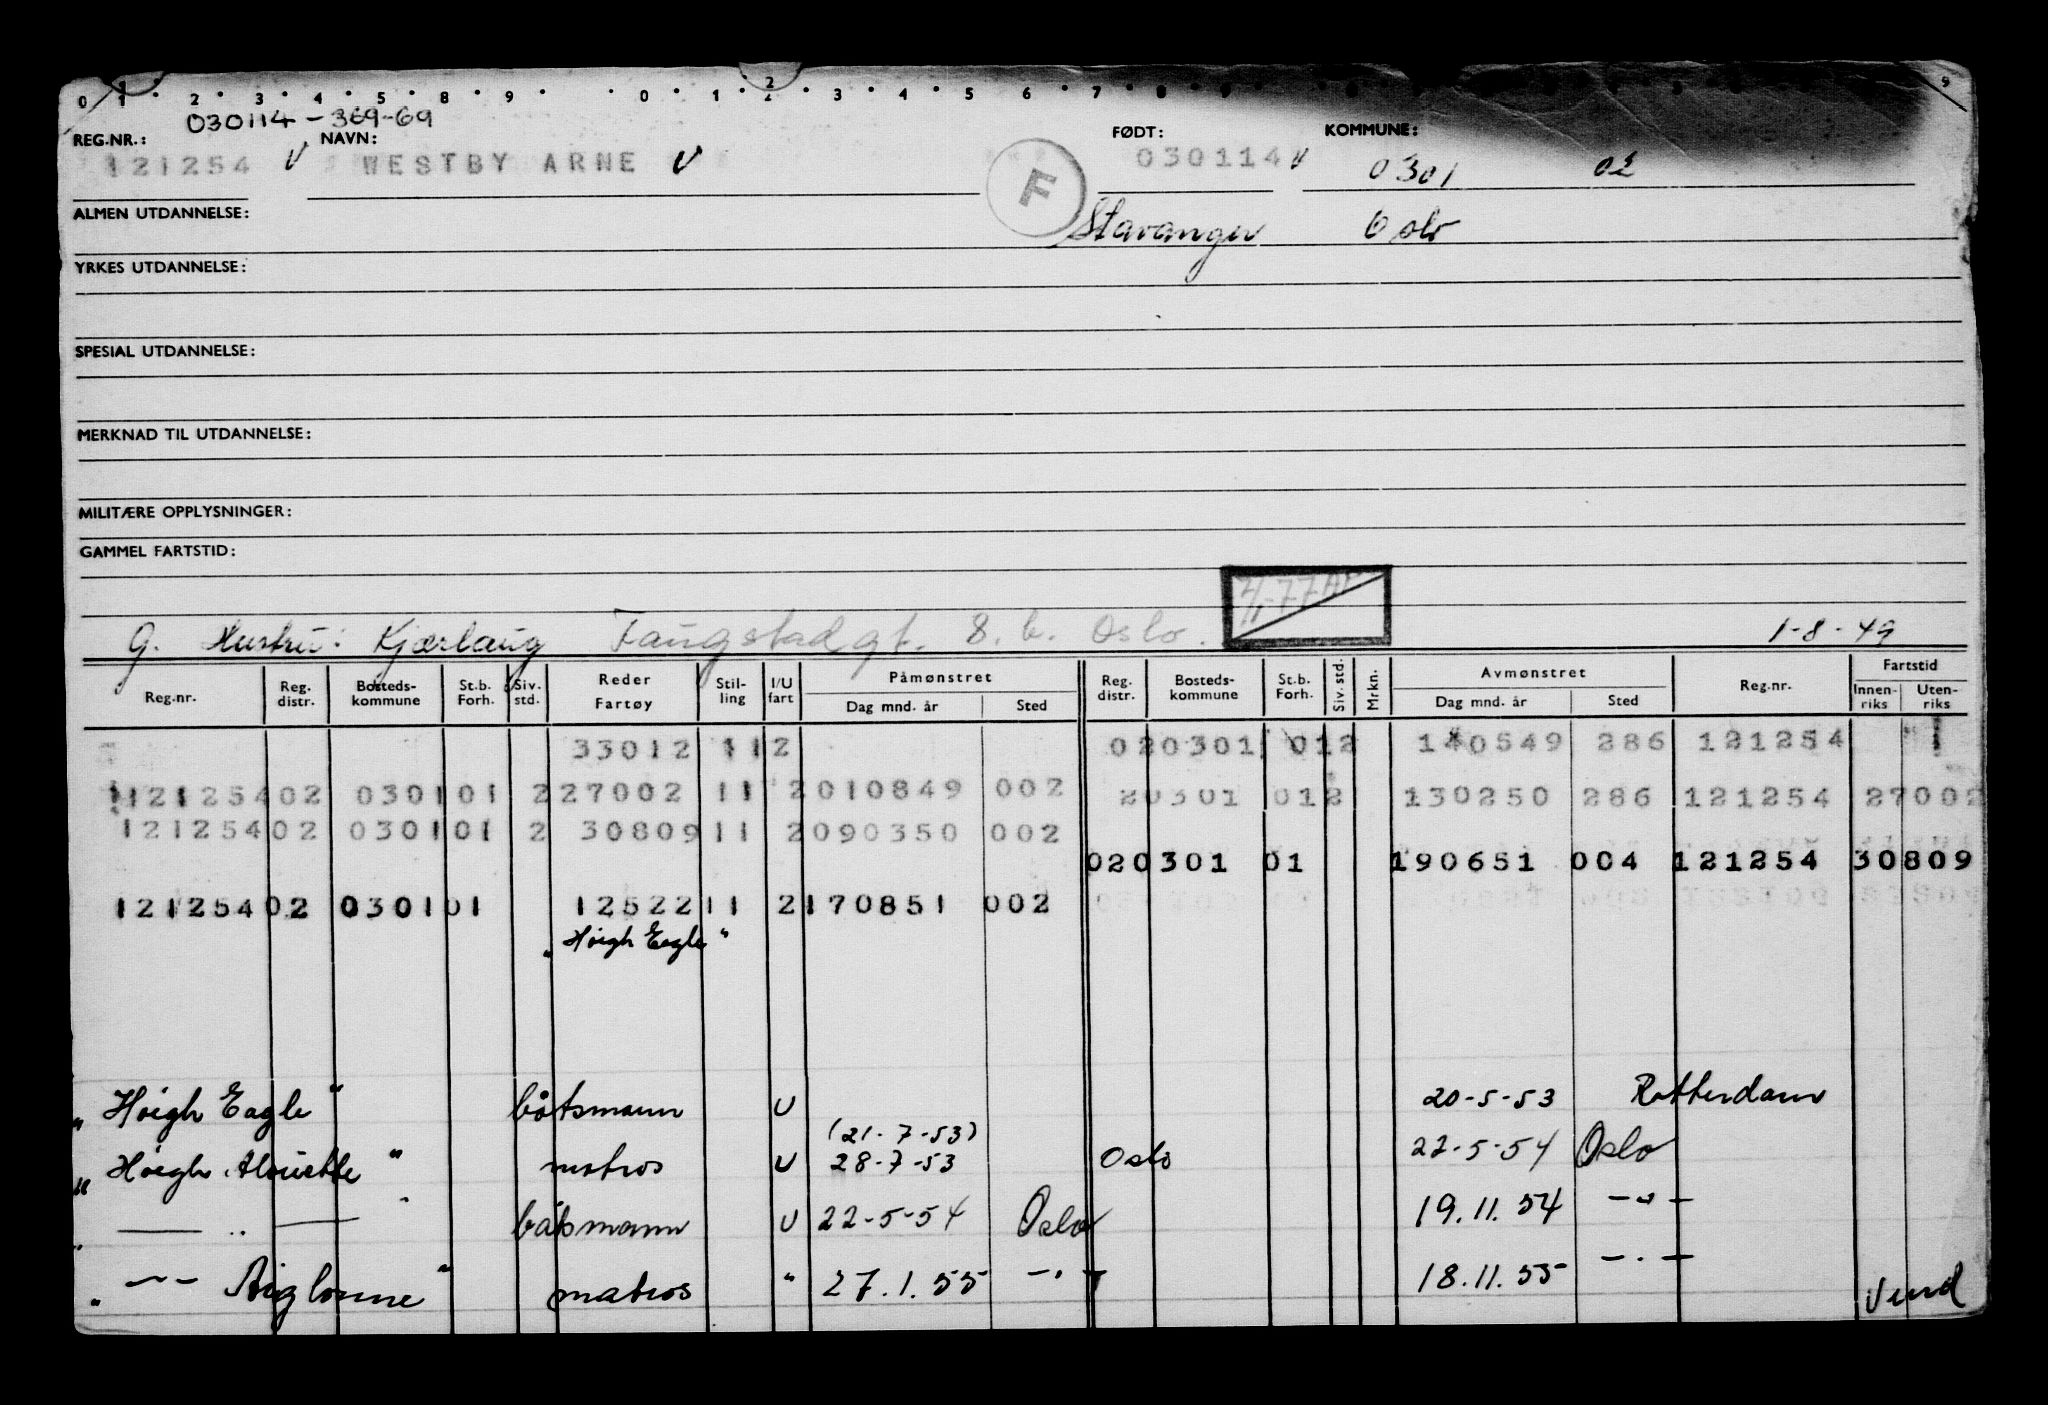 0 1 2 3 4 5 8 9 0 1 2 3 4 5 6 7 8 9
030114-369-69
REG.NR.: NAVN: FØDT: KOMMUNE:
121254 V WESTBY ARNE V F 030114 V 0301 02
ALMEN UTDANNELSE: Stavanger Oslo
YRKES UTDANNELSE:
SPESIAL UTDANNELSE:
MERKNAD TIL UTDANNELSE:
MILITÆRE OPPLYSNINGER:
GAMMEL FARTSTID:
G. Hustru: Kjærlaug Fangstadgt. 8. b. Oslo. 1-8-49
Reg.nr. Reg. distr. Bosteds-kommune St.b. Forh. Siv. std. Reder Fartøy Stil-ling I/U fart Påmønstret Dag mnd. år Sted Reg. distr. Bosteds-kommune St.b. Forh. Siv. std. Mrkn. Avmønstret Dag mnd. år Sted Reg.nr. Fartstid Innen-riks Uten-riks
33012 112 020301 012 140549 286 121254 1
121254 02 0301 01 2 27002 11 2 010849 002 20301 012 130250 286 121254 27002
121254 02 0301 01 2 30809 11 2 090350 002
020301 01 190651 004 121254 30809
121254 02 0301 01 12522 11 2 170851 002
"Høigh Eagle"
"Høigh Eagle" båtsmann U 20-5-53 Rotterdam
(21-7-53)
"Høigh Alouette" matros U 28-7-53 Oslo 22-5-54 Oslo
" — " — " båtsmann U 22-5-54 Oslo 19.11.54 —"—
" —"— Aiglonne" matros " 27.1.55 —"— 18.11.55 —"—
Vend